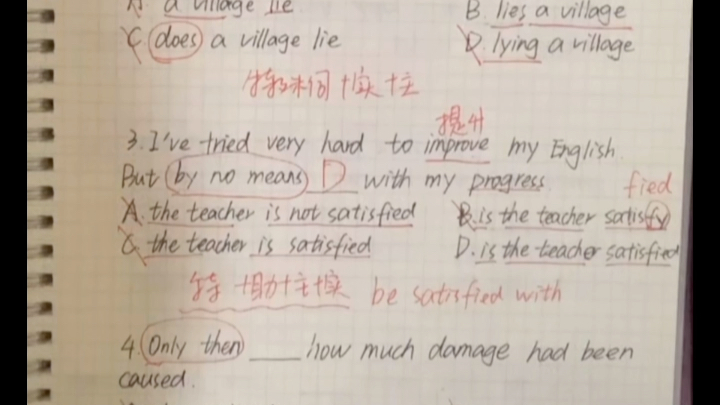 A. a village lie B. lies a village
C. does a village lie D. lying a village
特殊词+实+主
提升
3. I've tried very hard to improve my English.
But by no means D with my progress
fied
A. the teacher is not satisfied B. is the teacher satisfy
C. the teacher is satisfied D. is the teacher satisfied
特+助+主+实 be satisfied with
4. Only then ____ how much damage had been
caused.